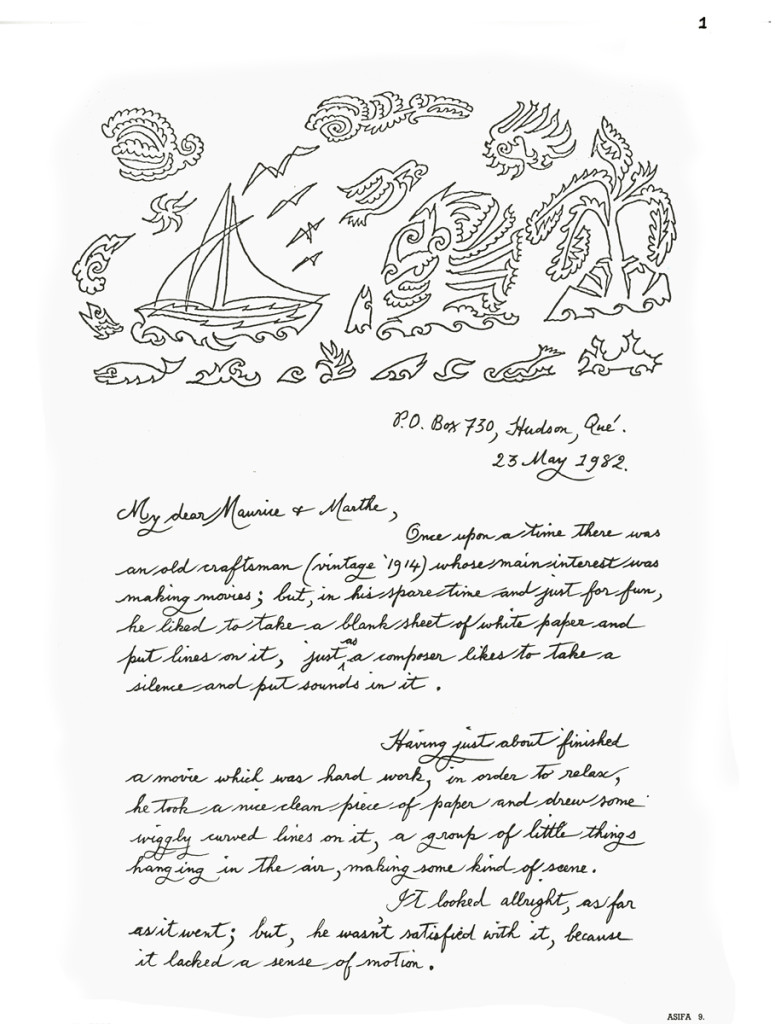 1
P.O. Box 730, Hudson, Qué.
23 May 1982.
My dear Maurice & Marthe,
Once upon a time there was
an old craftsman (vintage '1914) whose main interest was
making movies; but, in his spare time and just for fun,
he liked to take a blank sheet of white paper and
put lines on it, just as a composer likes to take a
silence and put sounds in it.
Having just about finished
a movie which was hard work, in order to relax,
he took a nice clean piece of paper and drew some
wiggly curved lines on it, a group of little things
hanging in the air, making some kind of scene.
It looked allright, as far
as it went; but, he wasn't satisfied with it, because
it lacked a sense of motion.
ASIFA 9.